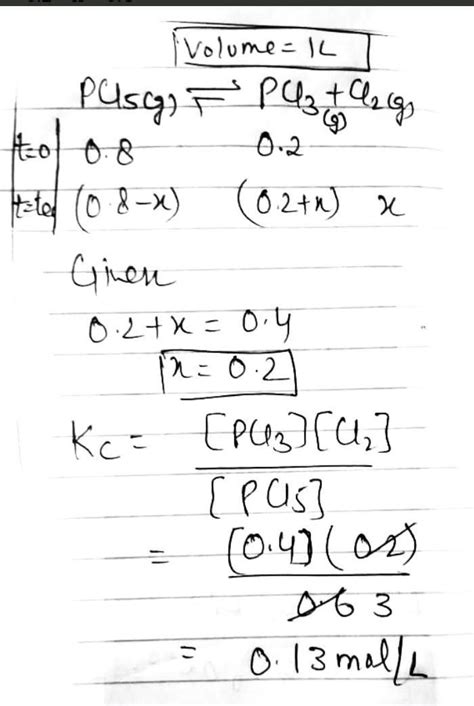 Volume = 1L
PCl5(g) ⇌ PCl3 (g) + Cl2(g)
t=0 0.8 0.2
t=teq (0.8-x) (0.2+x) x
Given
0.2+x = 0.4
x = 0.2
Kc = [PCl3][Cl2]
[PCl5]
= [0.4] (0.2)
0.6 3
= 0.13 mol/L